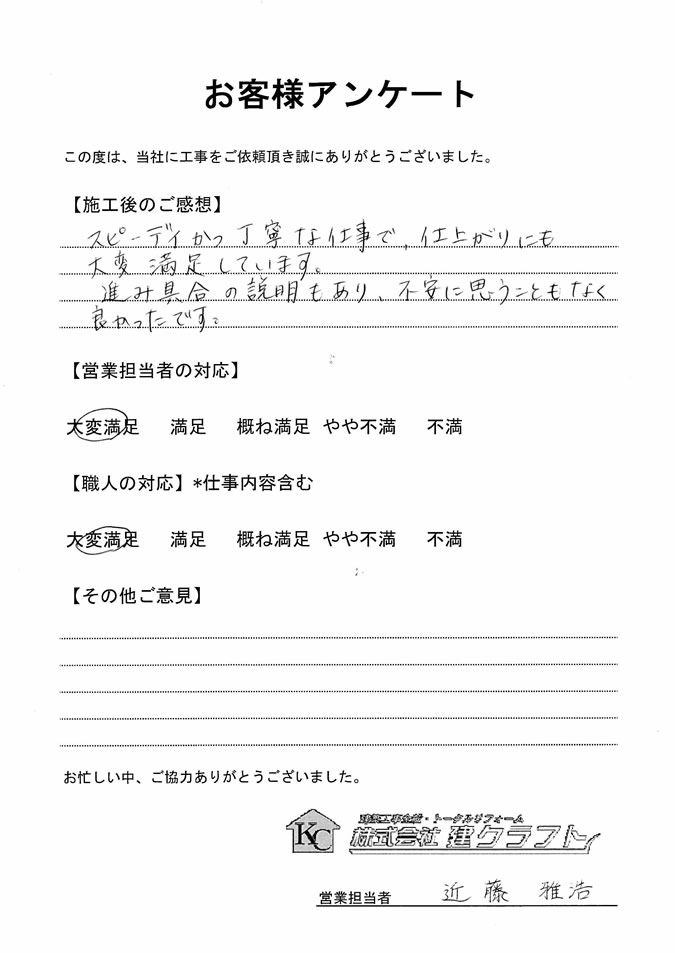 お客様アンケート
この度は、当社に工事をご依頼頂き誠にありがとうございました。
【施工後のご感想】
スピーディかつ丁寧な仕事で、仕上がりにも
大変満足しています。
進み具合の説明もあり、不安に思うこともなく
良かったです。
【営業担当者の対応】
大変満足 満足 概ね満足 やや不満 不満
【職人の対応】*仕事内容含む
大変満足 満足 概ね満足 やや不満 不満
【その他ご意見】
お忙しい中、ご協力ありがとうございました。
KC
建築工事全般・トータルリフォーム
株式会社 建クラフト
営業担当者 近藤 雅浩